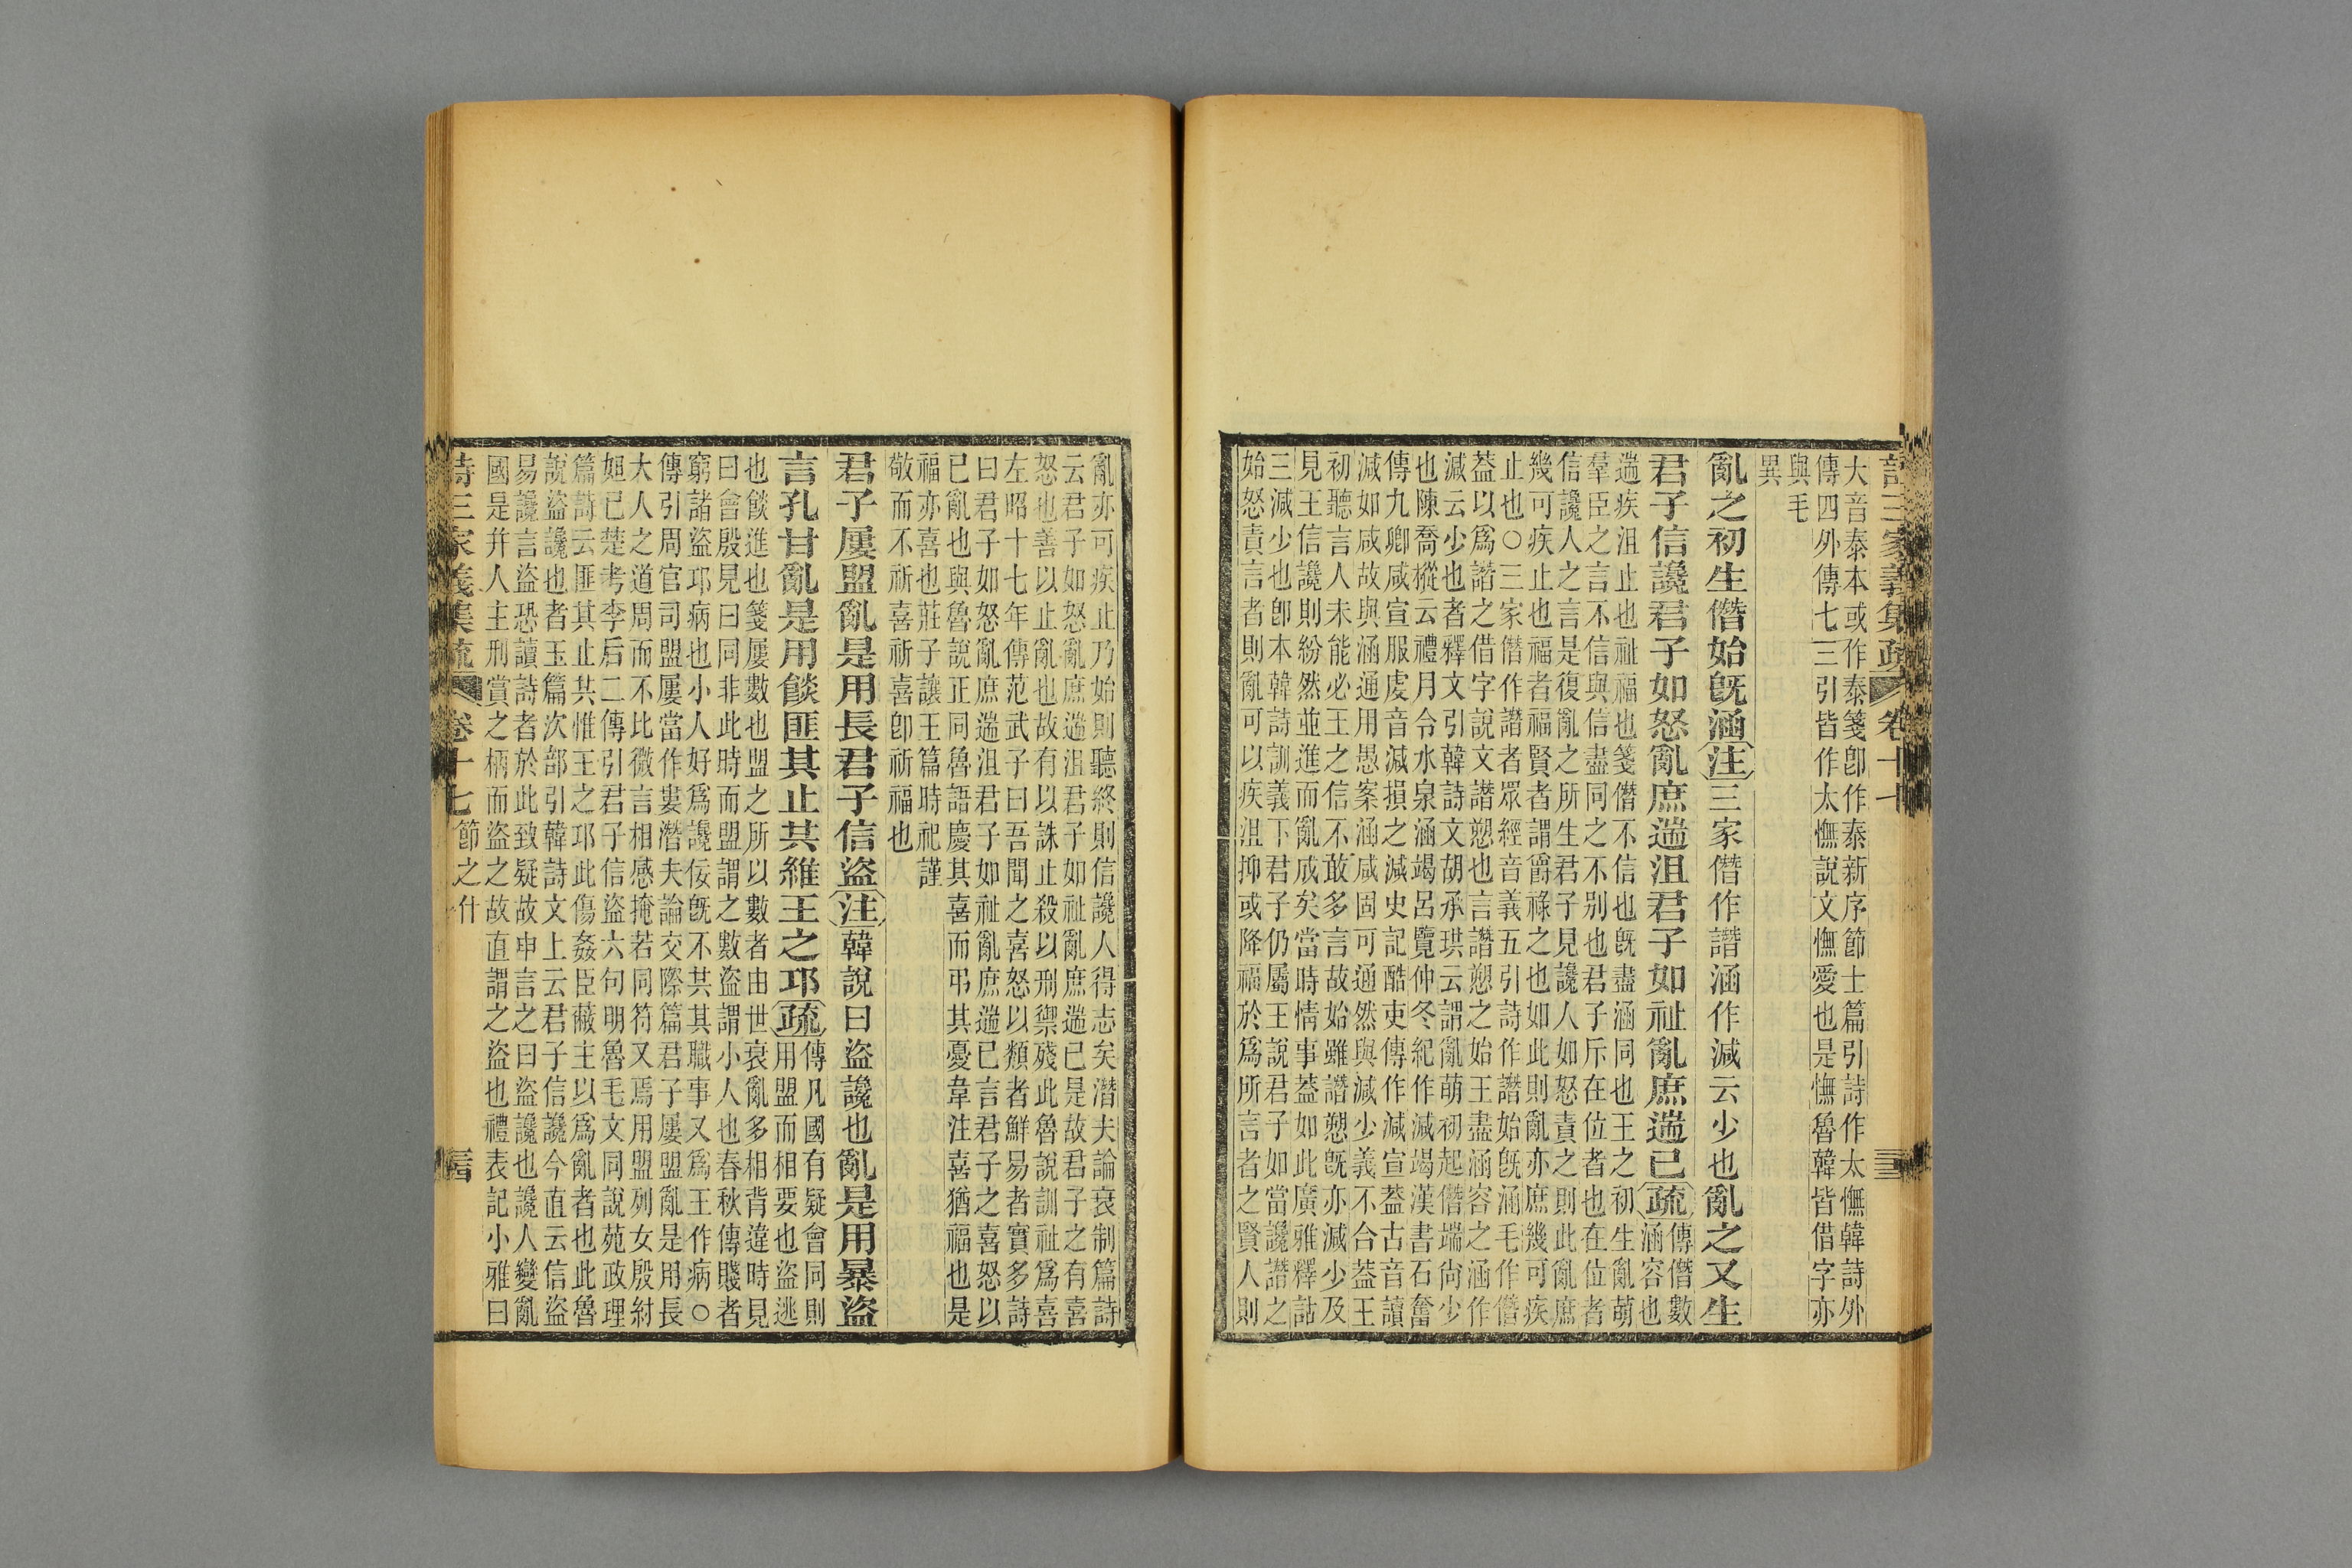 詩三家義集疏 卷十七
大音泰本或作泰箋卽作泰新序節士篇引詩作太憮韓詩外
傳四外傳七三引皆作太憮說文憮愛也是憮魯韓皆借字亦
與毛
異
亂之初生僭始旣涵注三家僭作譖涵作減云少也亂之又生
君子信讒君子如怒亂庶遄沮君子如祉亂庶遄已疏傳僭數
涵容也
遄疾沮止也祉福也箋僭不信也旣盡涵同也王之初生亂萌
羣臣之言不信與信盡同之不别也君子斥在位者也在位者
信讒人之言是復亂之所生君子見讒人如怒責之則此亂庶
幾可疾止也福者福賢者謂爵祿之也如此則亂亦庶幾可疾
止也〇三家僭作譖者眾經音義五引詩作譖始旣涵毛作僭
葢以爲譖之借字說文譖愬也言譖愬之始王盡涵容之涵作
減云少也者釋文引韓詩文胡承珙云謂亂萌初起僭端尙少
也陳喬樅云禮月令水泉涵竭呂覽仲冬紀作減竭漢書石奮
傳九卿咸宣服虔音減損之減史記酷吏傳作減宣葢古音讀
減如咸故與涵通用愚案涵咸固可通然與減少義不合葢王
初聽言人未能必王之信不敢多言故始雖譖愬旣亦減少及
見王信讒則紛然並進而亂成矣當時情事葢如此廣雅釋詁
三減少也卽本韓詩訓義下君子仍屬王說君子如當讒譖之
始怒責言者則亂可以疾沮抑或降福於爲所言者之賢人則
亂亦可疾止乃始則聽終則信讒人得志矣潛夫論衰制篇詩
云君子如怒亂庶遄沮君子如祉亂庶遄已是故君子之有喜
怒也善以止亂也故有以誅止殺以刑禦殘此魯說訓祉爲喜
左昭十七年傳范武子曰吾聞之喜怒以類者鮮易者實多詩
曰君子如怒亂庶遄沮君子如祉亂庶遄已言君子之喜怒以
已亂也與魯說正同魯語慶其喜而弔其憂韋注喜猶福也是
福亦喜也莊子讓王篇時祀謹
敬而不祈喜祈喜卽祈福也
君子屢盟亂是用長君子信盜注韓說曰盜讒也亂是用暴盜
言孔甘亂是用餤匪其止共維王之邛疏傳凡國有疑會同則
用盟而相要也盜逃
也餤進也箋屢數也盟之所以數者由世衰亂多相背違時見
曰會殷見曰同非此時而盟謂之數盜謂小人也春秋傳賤者
窮諸盜邛病也小人好爲讒佞旣不其其職事又爲王作病〇
傳引周官司盟屢當作婁潛夫論交際篇君子屢盟亂是用長
大人之道周而不比微言相感掩若同符又焉用盟列女殷紂
妲已楚考李后二傳引君子信盜六句明魯毛文同說苑政理
篇詩云匪其止共惟王之邛此傷姦臣蔽主以爲亂者也此魯
說盜讒也者玉篇次部引韓詩文上云君子信讒今直云信盜
易讒言盜恐讀詩者於此致疑故申言之曰盜讒也讒人變亂
國是幷人主刑賞之柄而盜之故直謂之盜也禮表記小雅曰
詩三家義集疏 卷十七 節之什